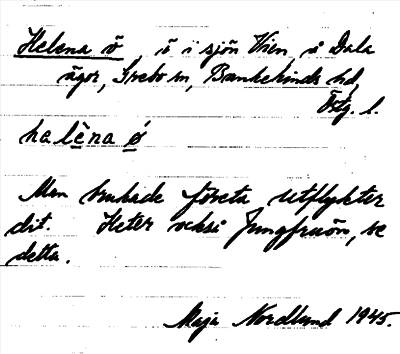 Helena ö, ö i sjön Vien, å Dala
ägor, Grebo sn, Bankekinds hd,
Östg. l.
halèna ǿ
Man brukade företa utflykter
dit. Heter också Jungfruön, se
detta.
Maja Nordlund 1945.